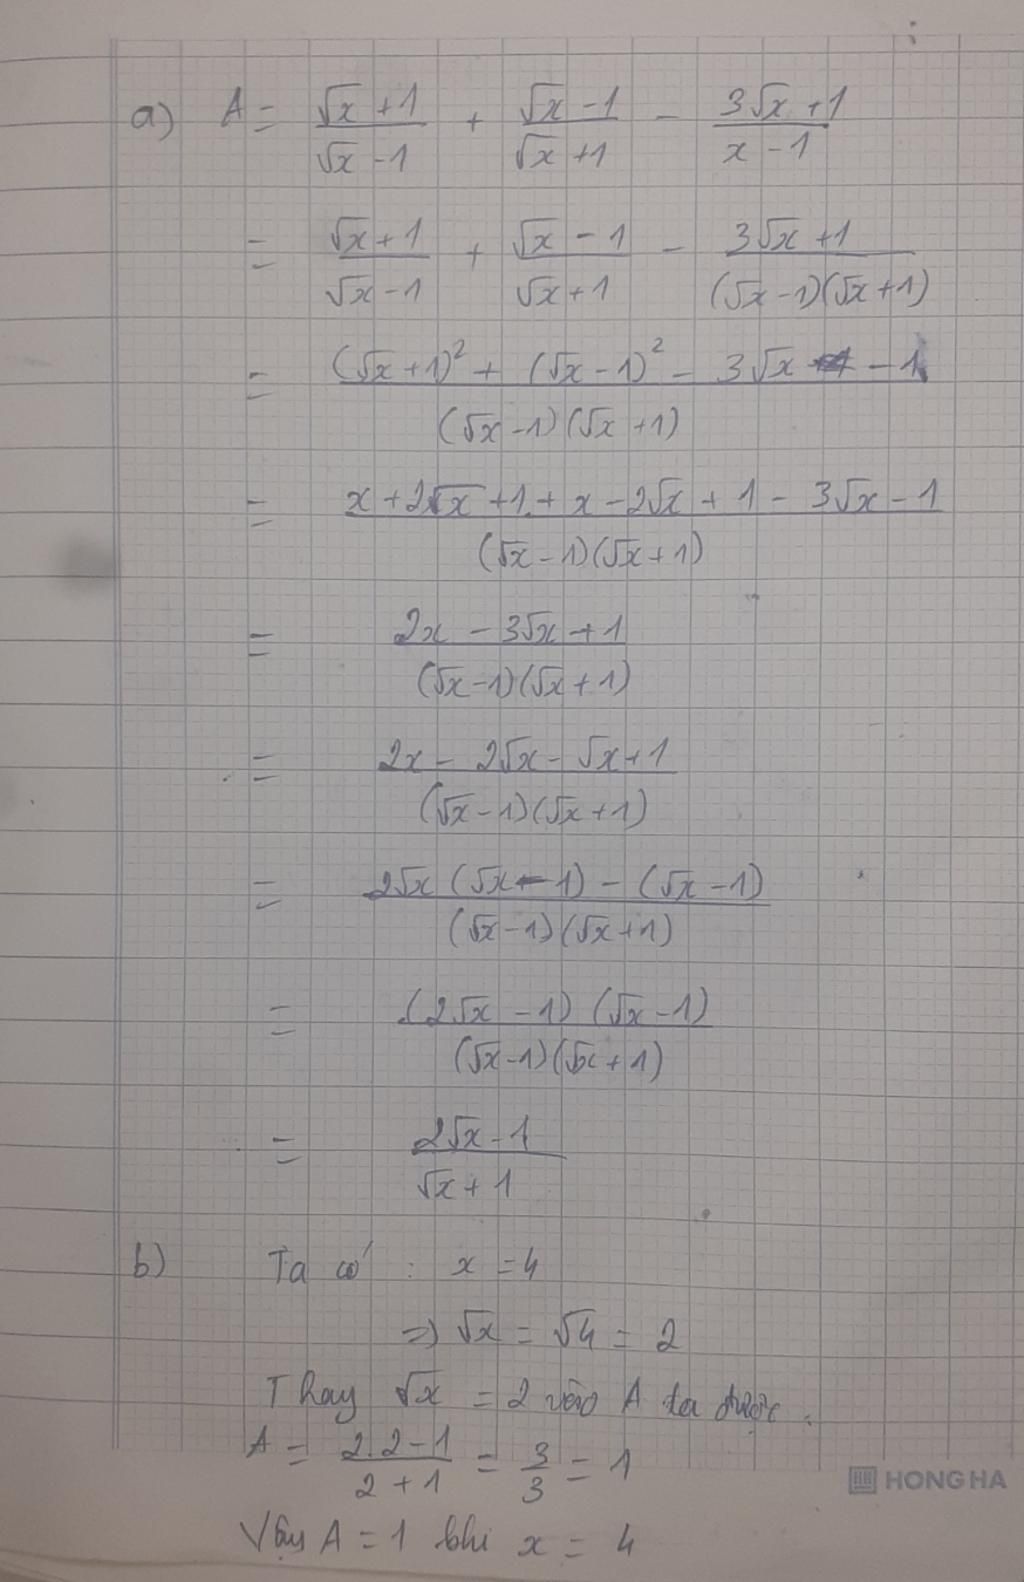 a) A = (√x + 1)/(√x - 1) + (√x - 1)/(√x + 1) - (3√x + 1)/(x - 1)
= (√x + 1)/(√x - 1) + (√x - 1)/(√x + 1) - (3√x + 1)/((√x - 1)(√x + 1))
= ((√x + 1)² + (√x - 1)² - 3√x - 1)/((√x - 1)(√x + 1))
= (x + 2√x + 1 + x - 2√x + 1 - 3√x - 1)/((√x - 1)(√x + 1))
= (2x - 3√x + 1)/((√x - 1)(√x + 1))
= (2x - 2√x - √x + 1)/((√x - 1)(√x + 1))
= (2√x (√x - 1) - (√x - 1))/((√x - 1)(√x + 1))
= ((2√x - 1)(√x - 1))/((√x - 1)(√x + 1))
= (2√x - 1)/(√x + 1)
b) Ta có : x = 4
=> √x = √4 = 2
Thay √x = 2 vào A ta được.
A = (2.2 - 1)/(2 + 1) = 3/3 = 1
HONG HA
Vậy A = 1 khi x = 4